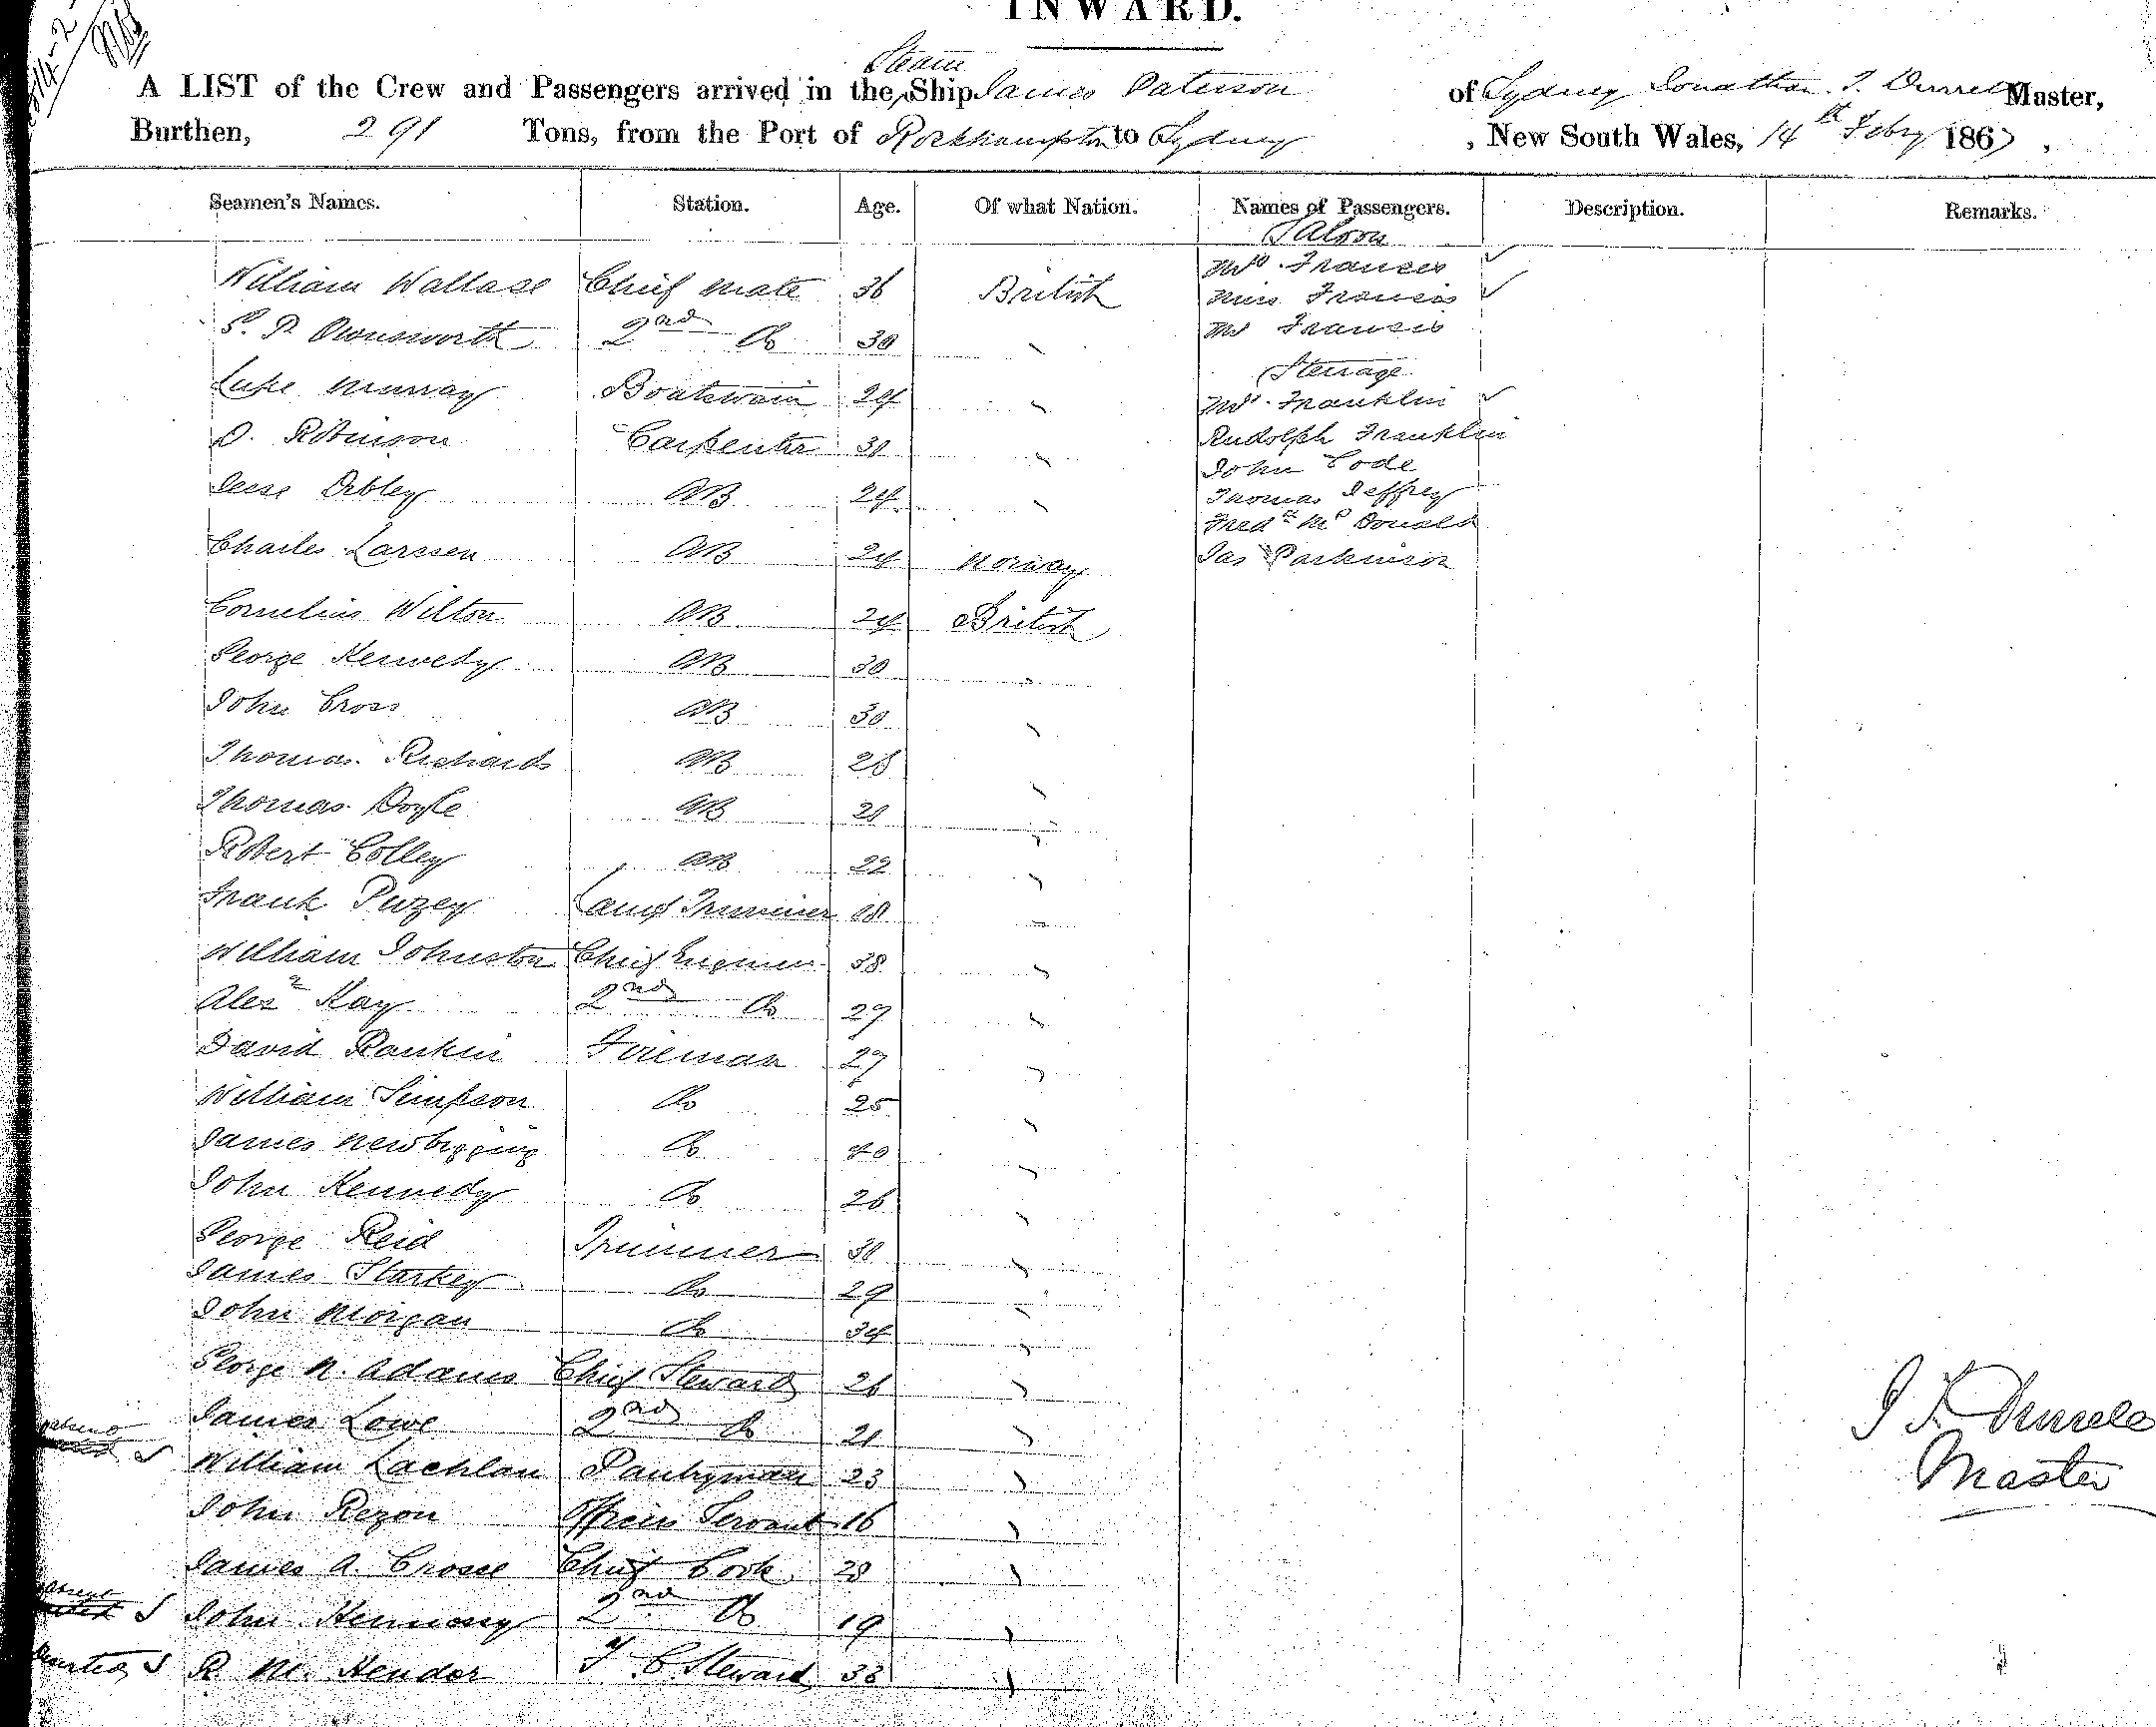 INWARD.
Steam
A LIST of the Crew and Passengers arrived in the Ship James Paterson of Sydney Jonathan T. Master,
Burthen, 291 Tons, from the Port of Rockhampton to Sydney, New South Wales, 14th Feby 1867,
Seamen's Names. Station. Age. Of what Nation. Names of Passengers. Description. Remarks.
Saloon
William Wallace Chief Mate 36 British Mrs. Francis
Miss Francis
2nd Do 30 " Mr Francis
Steerage
Luke Murray Boatswain 24 " Mrs. Franklin
D. Robinson Carpenter 30 " Rudolph Franklin
John Code
Jesse AB 24 " Thomas Jeffrey
Fredk McDonald
Charles Larssen AB 24 Norway Jas Parkinson
Cornelius Wilton AB 24 British
George Kennedy AB 30 "
John Cross AB 30 "
Thomas Richards AB 28 "
Thomas Doyle AB 21 "
Robert Colley AB 22 "
Frank Puzey Lamp Trimmer 18 "
William Johnston Chief Engineer 38 "
Alexr Kay 2nd Do 27 "
David Rankin Fireman 27 "
William Simpson Do 25 "
James Newbigging Do 40 "
John Kennedy Do 26 "
George Reid Trimmer 30 "
James Starkey Do 29 "
John Morgan Do 34 "
George N. Adams Chief Steward 26 "
James Lowe 2nd Do 21 "
William Lachlan Pantryman 23 "
John Rezon Officers Servant 16 "
James A. Crosse Chief Cook 28 "
John 2nd Do 19 "
R M. Hendor F C. Steward 33 "
Master